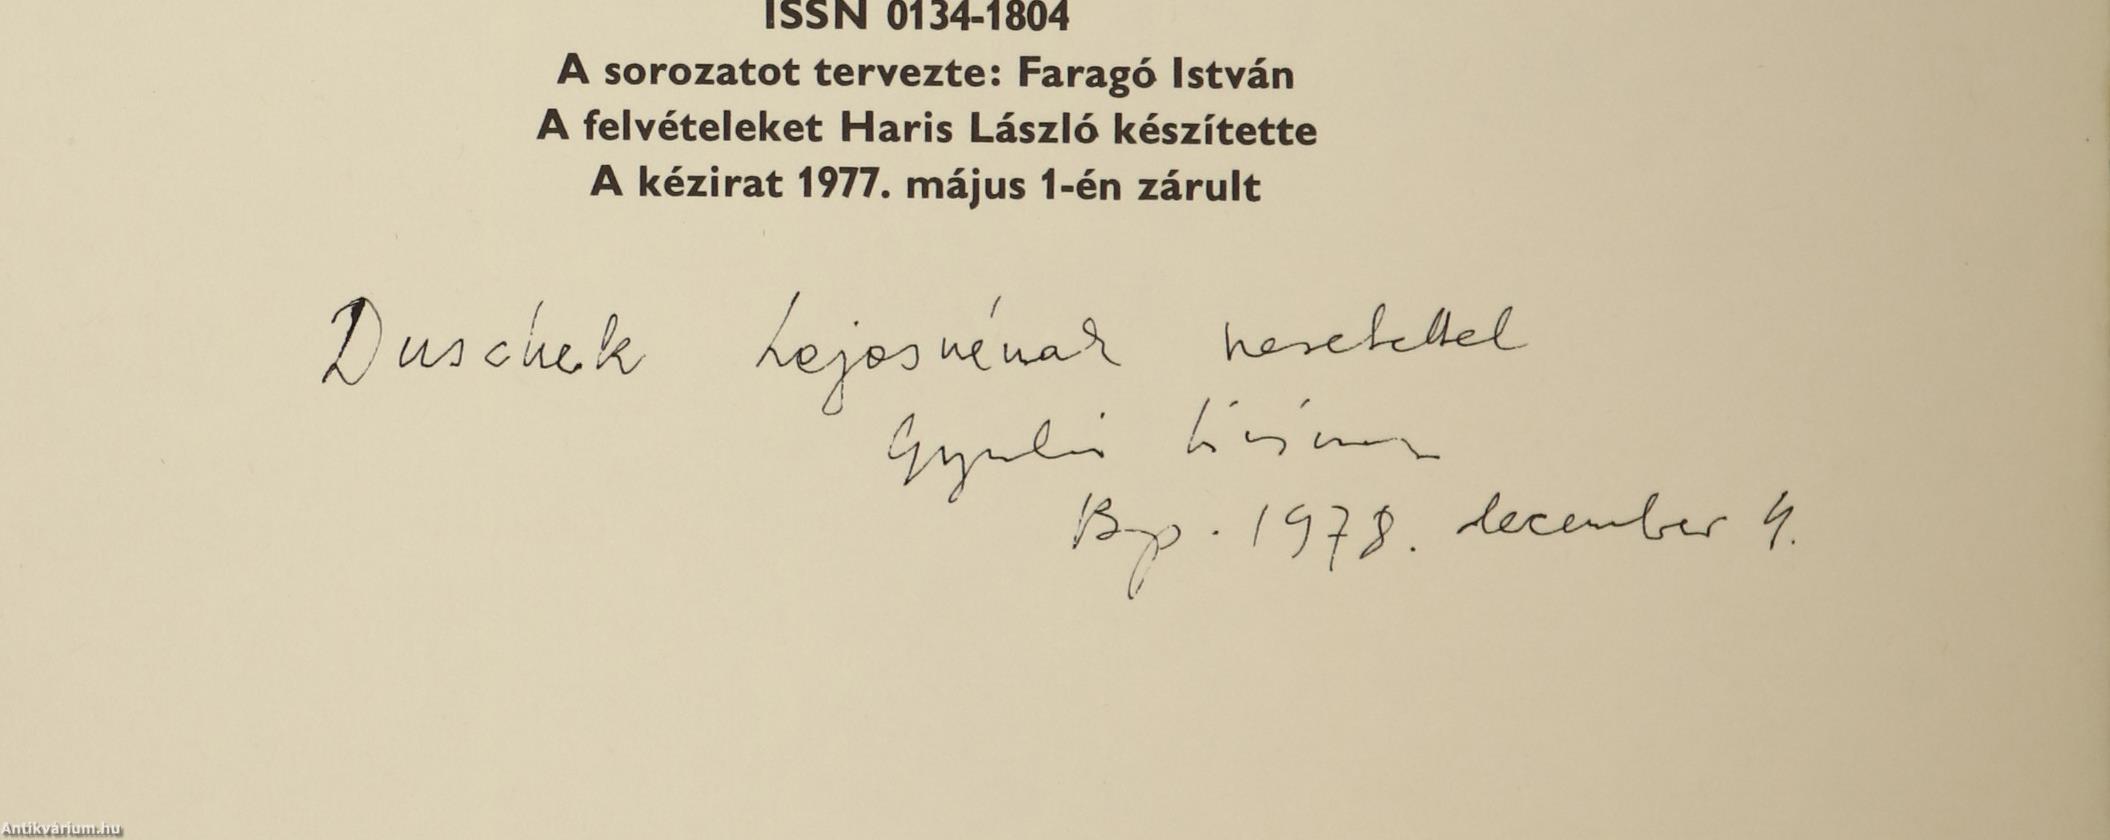 ISSN 0134-1804
A sorozatot tervezte: Faragó István
A felvételeket Haris László készítette
A kézirat 1977. május 1-én zárult
Duschek Lajosnénak szeretettel
Gyulai Líviusz
Bp. 1978. december 4.
Antikvárium.hu